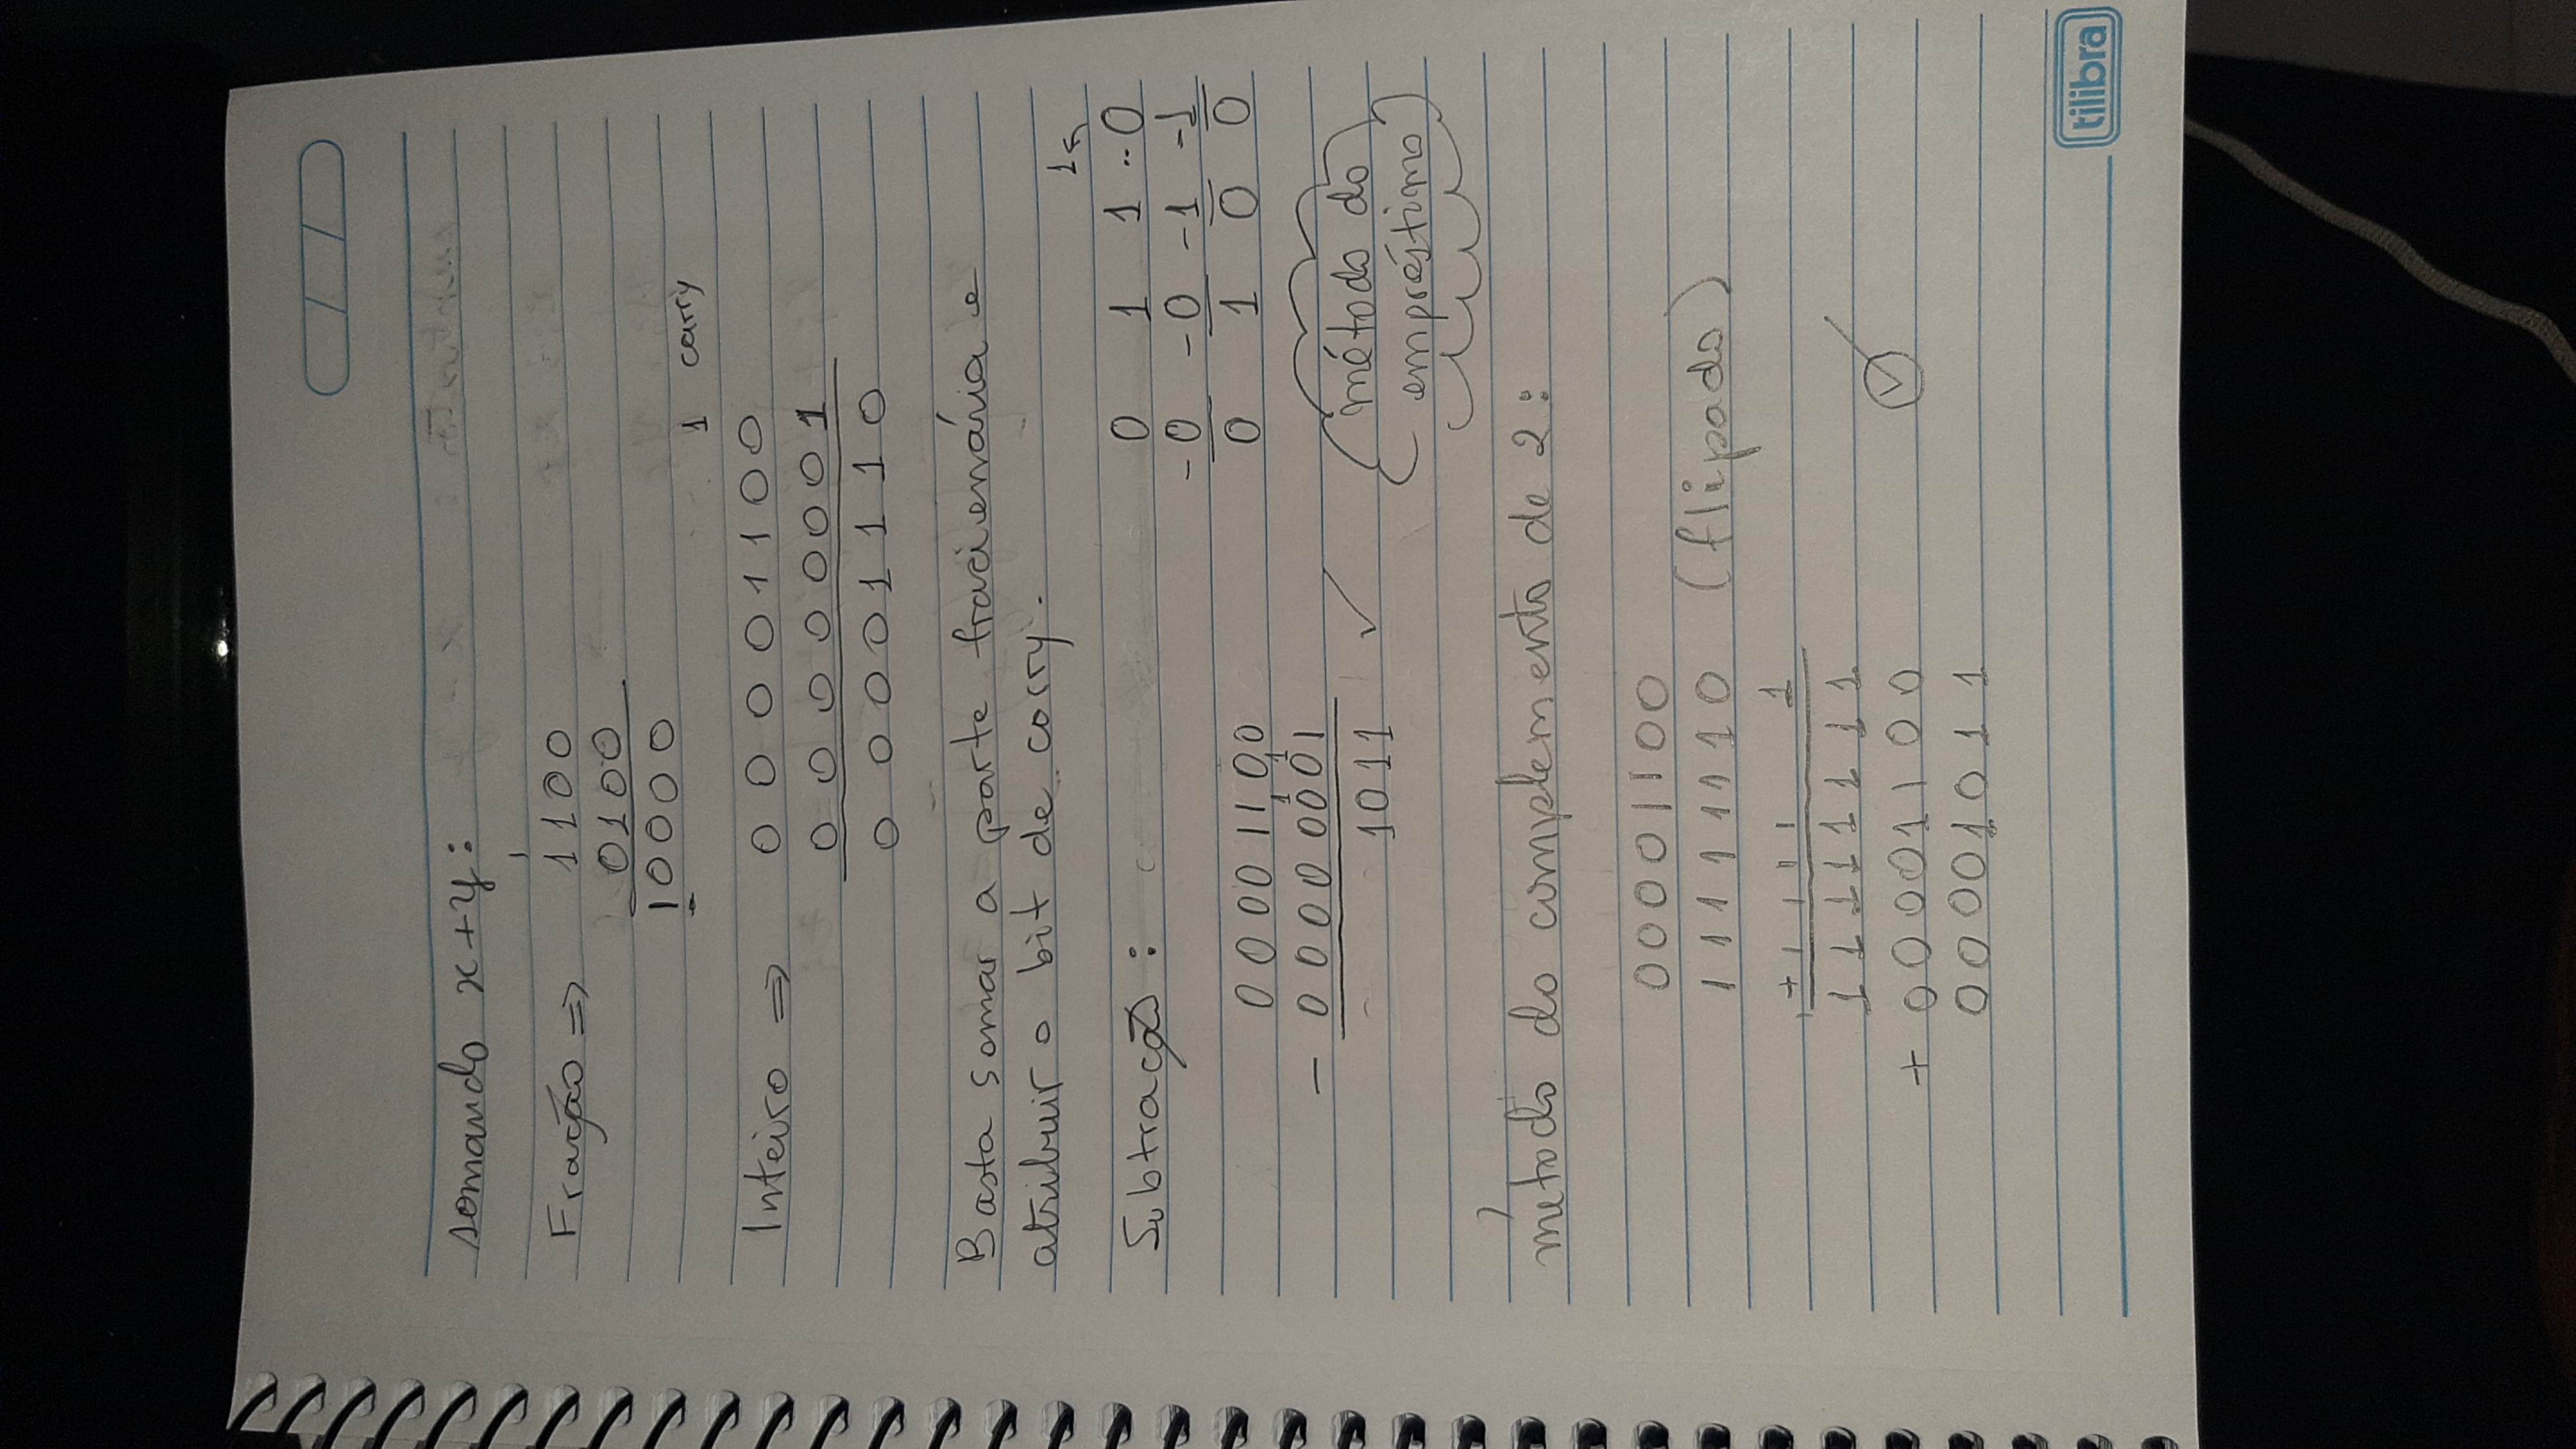 somando x+y:
1
Fração => 1100
0100
10000
1 carry
Inteiro => 0 0 0 0 1 1 0 0
0 0 0 0 0 0 0 1
0 0 0 0 1 1 1 0
Basta somar a parte fracionária e
atribuir o bit de carry.
Subtração:
1
0 1 1 0
-0 -0 -1 -1
0 1 0 0
00001100
1 1
- 00000001
1011 ✓
método do
empréstimo
método do complemento de 2:
00001100
11111110 (flipado)
+ 1 1 1 1 1
11111111
+ 00001100
00001011
tilibra